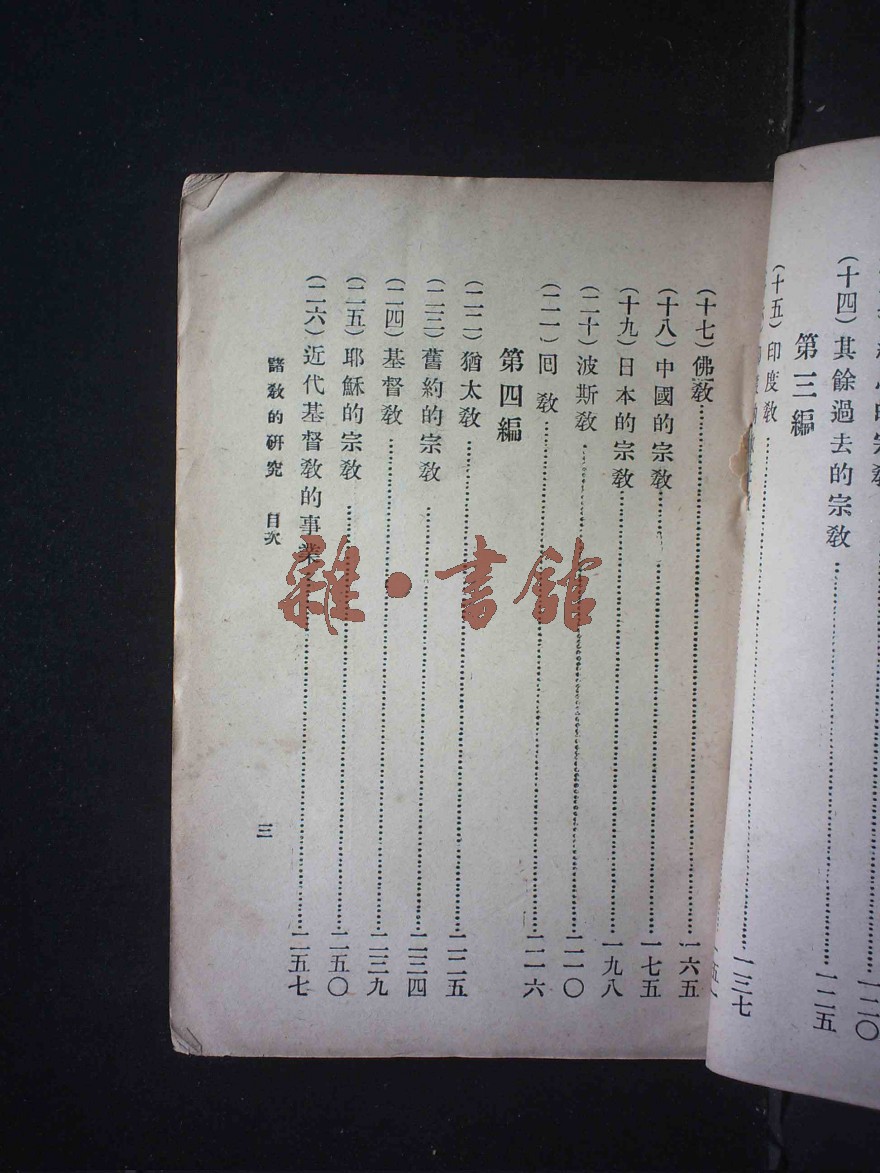 (十四)其餘過去的宗教……一二五
第三編
(十五)印度教……一三七
(十七)佛教……一六五
(十八)中國的宗教……一七五
(十九)日本的宗教……一九八
(二十)波斯教……二一〇
(二一)回教……二一六
第四編
(二二)猶太教……二二五
(二三)舊約的宗教……二三四
(二四)基督教……二三九
(二五)耶穌的宗教……二五〇
(二六)近代基督教的事業……二五七
諸教的研究 目次
三
雜·書館